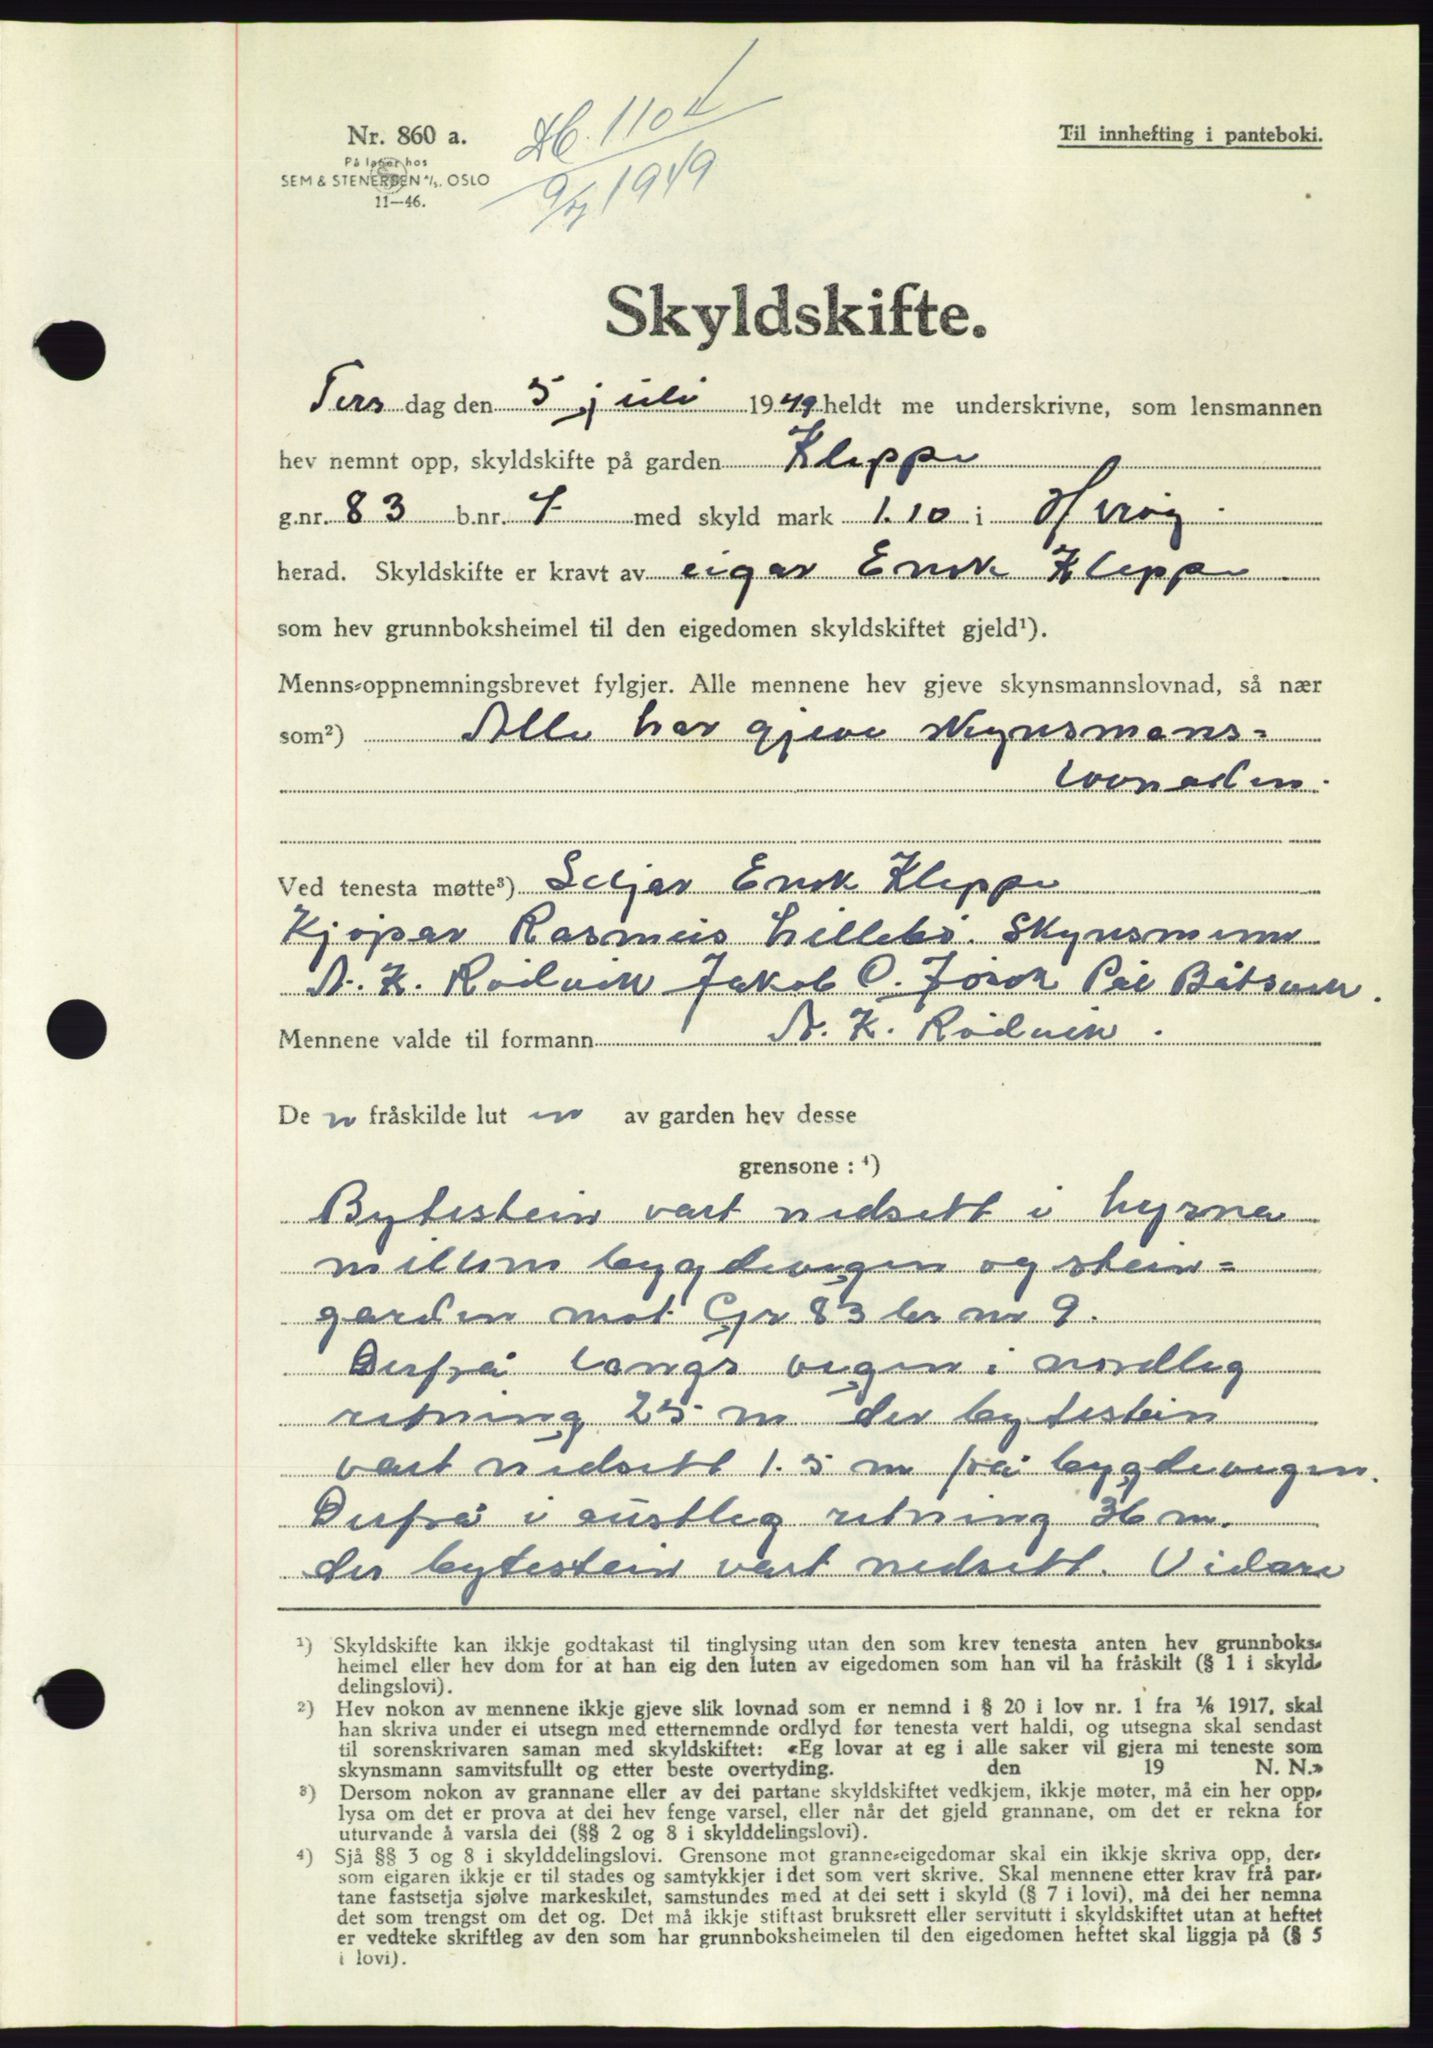 Nr. 860 a.
På lager hos
SEM & STENERSEN A/S. OSLO
11—46.
1104
9/7 1949
Til innhefting i panteboki.
Skyldskifte.
Tirs dag den 5 juli 1949 heldt me underskrivne, som lensmannen
hev nemnt opp, skyldskifte på garden Kleppe
g.nr. 83 b.nr. 7 med skyld mark 1.10 i Herøy
herad. Skyldskifte er kravt av eigar Enok Kleppe
som hev grunnboksheimel til den eigedomen skyldskiftet gjeld¹).
Menns-oppnemningsbrevet fylgjer. Alle mennene hev gjeve skynsmannslovnad, så nær
som²) Alle har gjeve skynsmans-
lovnaden.
Ved tenesta møtte³) Seljar Enok Kleppe
Kjøpar Rasmus Lillebø. Skynsmenn
A. K. Rødvik Jakob O. Pål Båtsvik.
Mennene valde til formann A. K. Rødvik.
De n fråskilde lut en av garden hev desse
grensone : ⁴)
Bytestein vart nedsett i hyrna
millom bygdevegen og stein-
garden mot Gr 83 br nr 9.
Derfrå langs vegen i nordleg
retning 25 m der bytestein
vart nedsett 1.5 m frå bygdevegen.
Derfrå i austleg retning 36 m.
der bytestein vart nedsett. Vidare
¹) Skyldskifte kan ikkje godtakast til tinglysing utan den som krev tenesta anten hev grunnboks-
heimel eller hev dom for at han eig den luten av eigedomen som han vil ha fråskilt (§ 1 i skyld-
delingslovi).
²) Hev nokon av mennene ikkje gjeve slik lovnad som er nemnd i § 20 i lov nr. 1 fra 1/6 1917, skal
han skriva under ei utsegn med etternemnde ordlyd før tenesta vert haldi, og utsegna skal sendast
til sorenskrivaren saman med skyldskiftet: «Eg lovar at eg i alle saker vil gjera mi teneste som
skynsmann samvitsfullt og etter beste overtyding. den 19 N. N.»
³) Dersom nokon av grannane eller av dei partane skyldskiftet vedkjem, ikkje møter, må ein her opp-
lysa om det er prova at dei hev fenge varsel, eller når det gjeld grannane, om det er rekna for
uturvande å varsla dei (§§ 2 og 8 i skylddelingslovi).
⁴) Sjå §§ 3 og 8 i skylddelingslovi. Grensone mot granne-eigedomar skal ein ikkje skriva opp, der-
som eigaren ikkje er til stades og samtykkjer i det som vert skrive. Skal mennene etter krav frå par-
tane fastsetja sjølve markeskilet, samstundes med at dei sett i skyld (§ 7 i lovi), må dei her nemna
det som trengst om det og. Det må ikkje stiftast bruksrett eller servitutt i skyldskiftet utan at heftet
er vedteke skriftleg av den som har grunnboksheimelen til den eigedomen heftet skal liggja på (§ 5
i lovi).